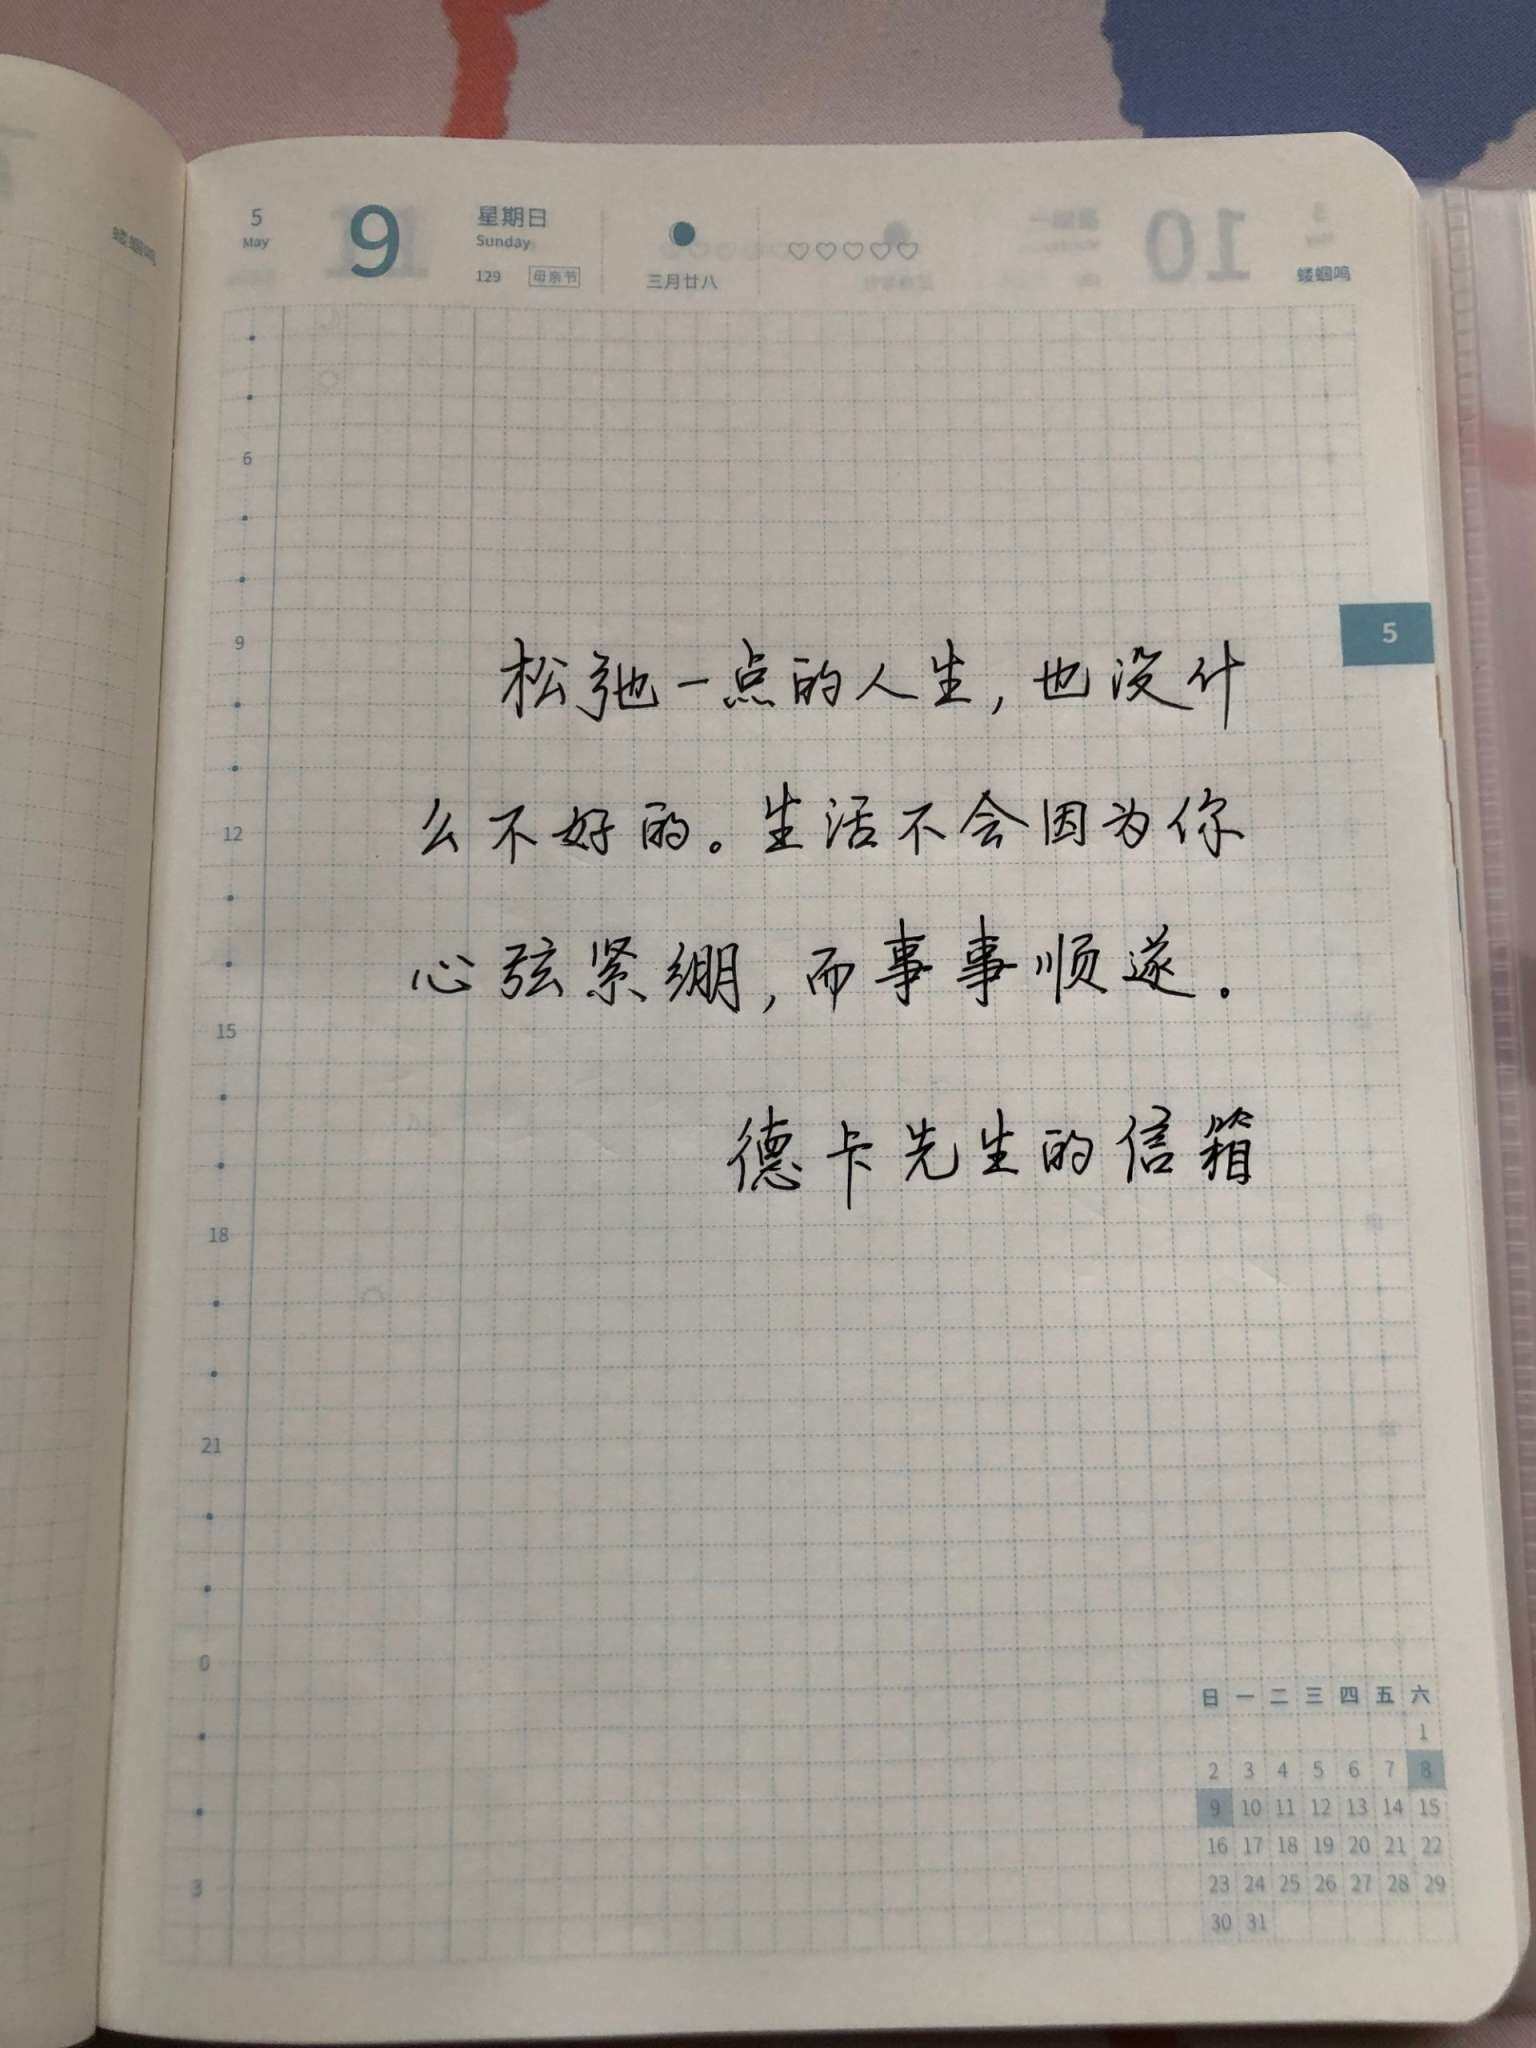 5 May 9 星期日 Sunday 129 母亲节 三月廿八 ♡♡♡♡♡ 10 蝼蝈鸣
6
9
5
松弛一点的人生，也没什
12
么不好的。生活不会因为你
心弦紧绷，而事事顺遂.
15
德卡先生的信箱
18
21
0
3
日 一 二 三 四 五 六
1
2 3 4 5 6 7 8
9 10 11 12 13 14 15
16 17 18 19 20 21 22
23 24 25 26 27 28 29
30 31